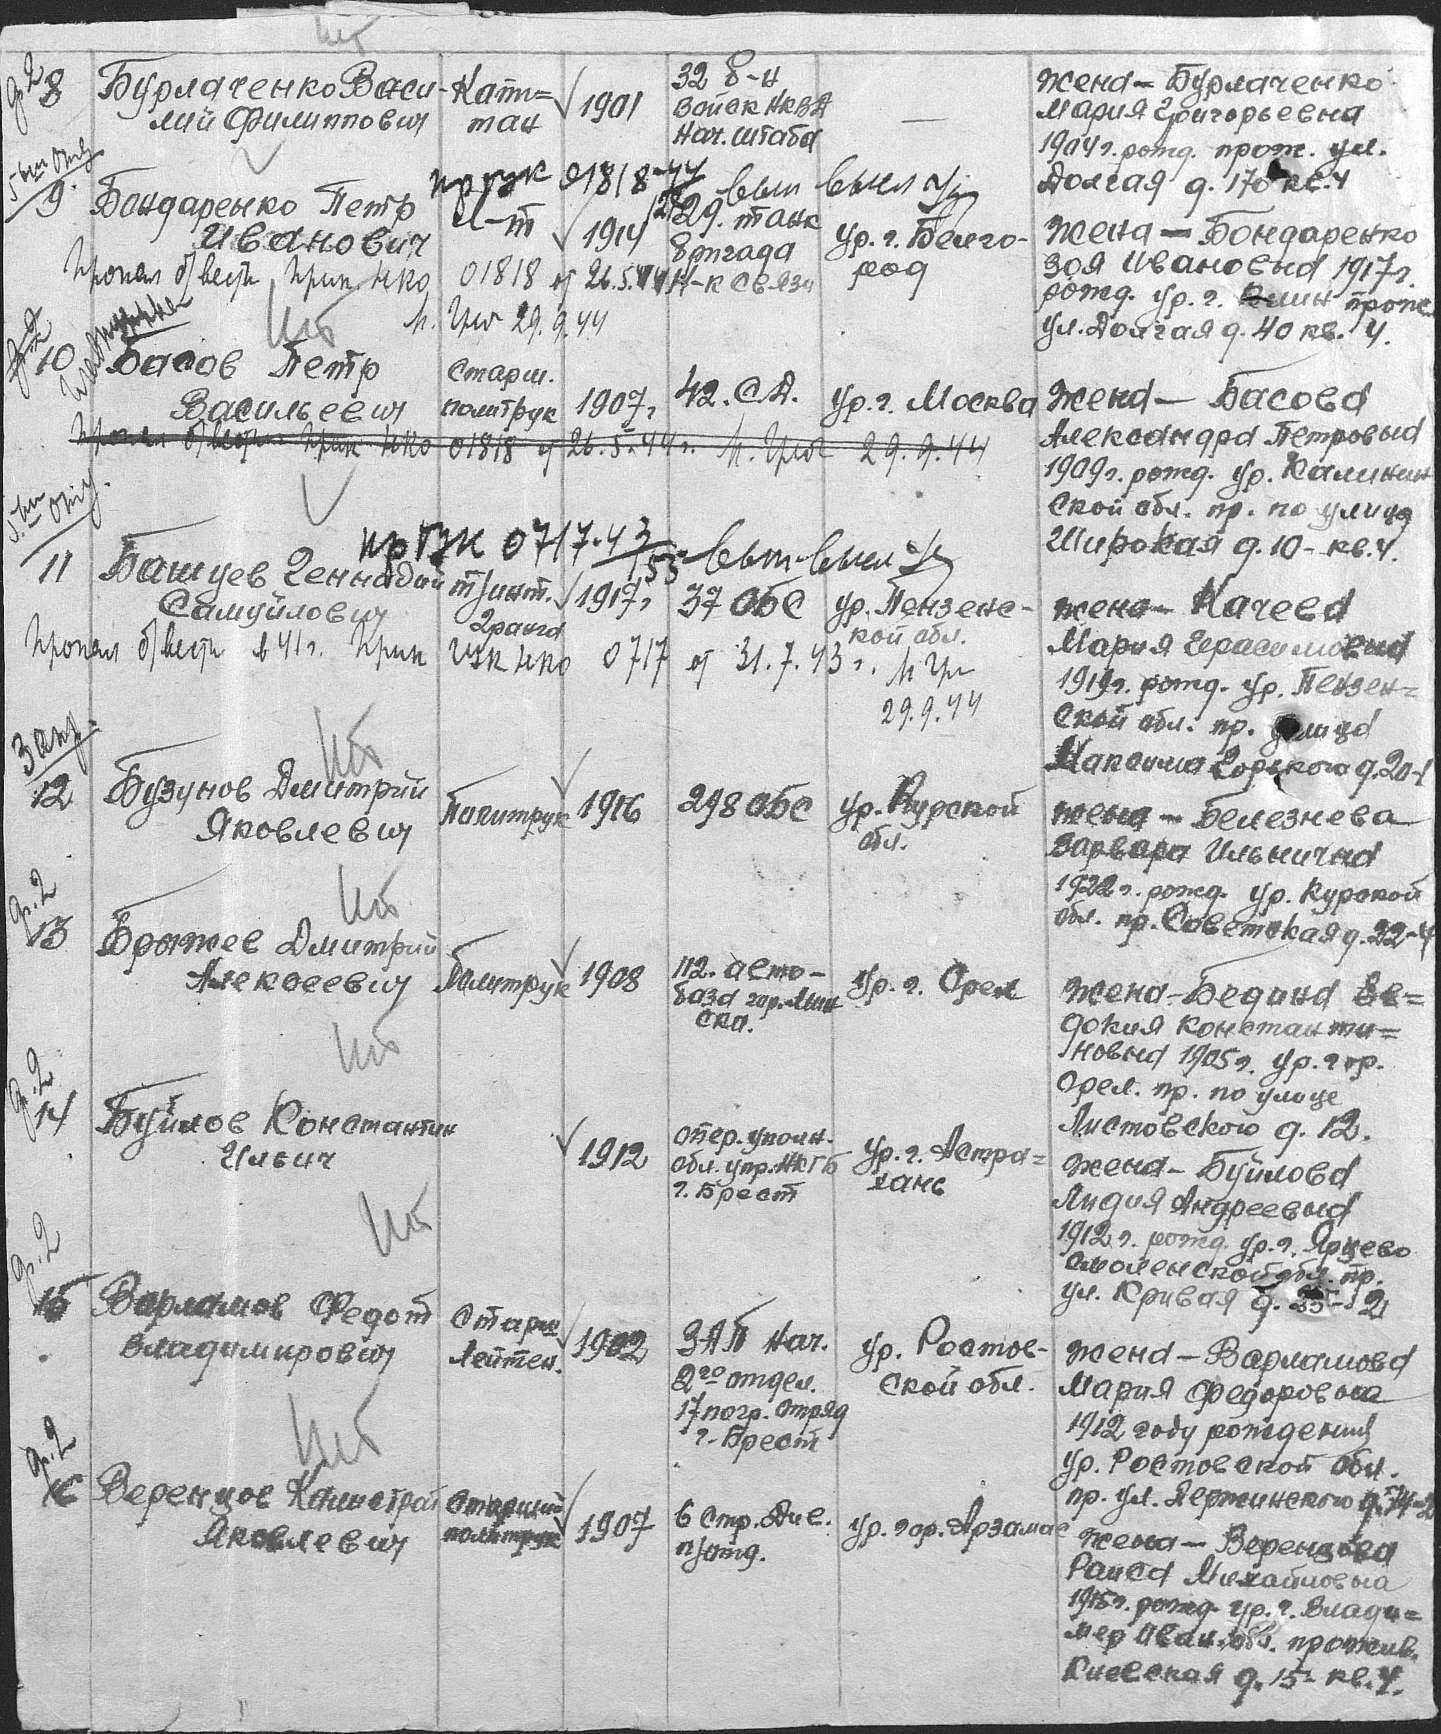 8 Бурлаченко Васи- Капи= 1901 32 8-й Жена - Бурлаченко
лий Филиппович тан войск НКВД — Мария Григорьевна
Нач. штаба 1904 г. рожд. прож. ул.
Долгая д. 170 кв. 4
пр ГУК 01818-44 вып выкл
9. Бондаренко Петр 1914 29. танк ур. г. Белго- Жена - Бондаренко
Иванович бригада род Зоя Ивановна 1917 г.
Пропал б/вести Прик НКО 01818 от 26.5.44 Н-к связи рожд. ур. г. прож.
29.9.44 ул. Долгая д. 40 кв. 4.
10 Басов Петр Старш. 1907 г 42. С.Д. ур. г. Москва Жена - Басова
Васильевич политрук Александра Петровна
Пропал б/вести Прик НКО 01818 от 26.5.44 г. 29.9.44 1909 г. рожд. ур. Калинин
ской обл. пр. по улица
Широкая д. 10 - кв. 4.
пр ГУК 0717-43 вып выкл
11 Геннадий т/инт. 1917 г 37 ОБС ур. Пензенс- жена - Качева
Самуйлович 2 ранга кой обл. Мария Герасимовна
Пропал б/вести в 41 г. Прик ГУК НКО 0717 от 31.7.43 г. 1919 г. рожд. ур. Пензен=
29.9.44 ской обл. пр. улица
Максима Горького д. 20-1
Запр.
12 Бузунов Дмитрий Политрук 1916 298 ОБС ур. Курской жена - Белезнева
Яковлевич обл. Варвара Ильинична
1922 г. рожд. ур. Курской
обл. пр. Советская д. 22-4
13 Дмитрий Политрук 1908 112. авто- ур. г. Орел жена - Бедина Ев=
Алексеевич база гор. Мин докия Константи=
ска. новна 1905 г. ур. гор.
Орел. пр. по улице
Листовского д. 12.
14 Буйлов Константин 1912 опер. уполн. ур. г. Астра= жена - Буйлова
Ильич обл. упр. НКГБ хань Лидия Андреевна
г. Брест 1912 г. рожд. ур. г. Ярцево
Смоленской обл. пр.
ул. Кривая д. 35-2
15 Варламов Федот Старш 1902 ЗАП Нач. ур. Ростов- жена - Варламова
Владимирович Лейтен. 2го отдел. ской обл. Мария Федоровна
17 погр. отряд 1912 году рождения
г. Брест ур. Ростовской обл.
пр. ул. Держинского
16 Веренцов Яковлевич Старший политрук 1907 6 Стр. Див. ур. гор. Арзамас жена - Веренцова
п/отд. Раиса Михайловна
1915 г. рожд. ур. г. Влади=
мер Иван. обл. прожив.
Киевская д. 15 - кв. 4.